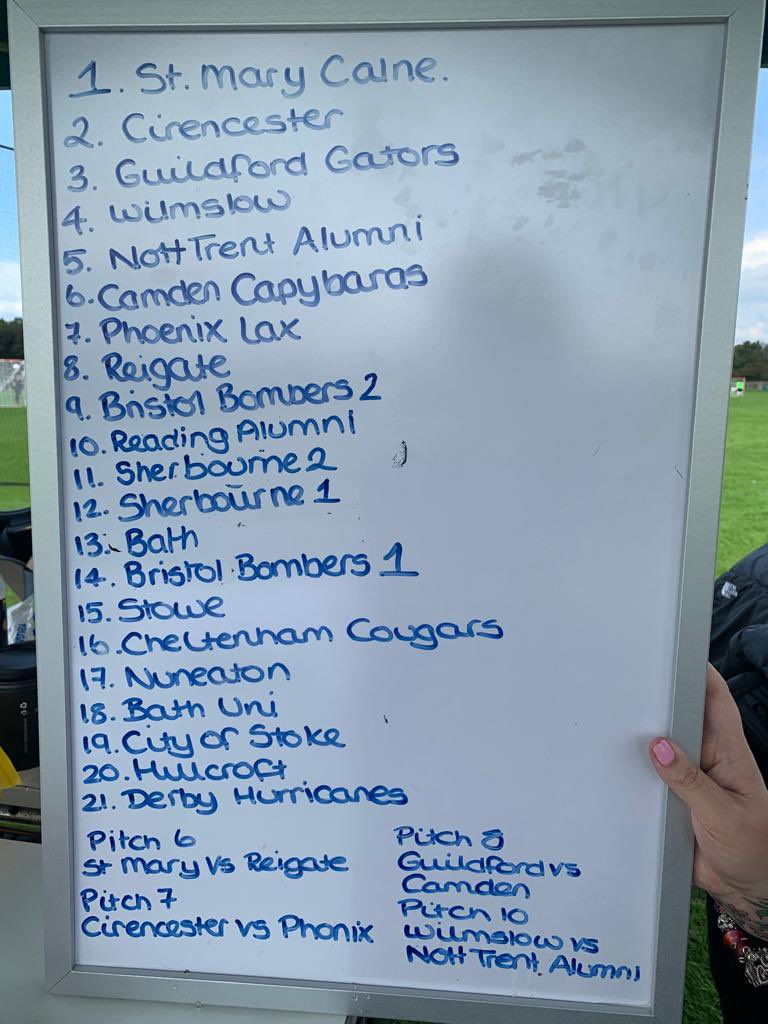 1. St. Mary Calne.
2. Cirencester
3. Guildford Gators
4. Wilmslow
5. Nott Trent Alumni
6. Camden Capybaras
7. Phoenix Lax
8. Reigate
9. Bristol Bombers 2
10. Reading Alumni
11. Sherbourne 2
12. Sherbourne 1
13. Bath
14. Bristol Bombers 1
15. Stowe
16. Cheltenham Cougars
17. Nuneaton
18. Bath Uni
19. City of Stoke
20. Hillcroft
21. Derby Hurricanes
Pitch 6
St Mary Vs Reigate
Pitch 7
Cirencester vs Phonix
Pitch 8
Guildford vs
Camden
Pitch 10
Wilmslow vs
Nott Trent Alumni